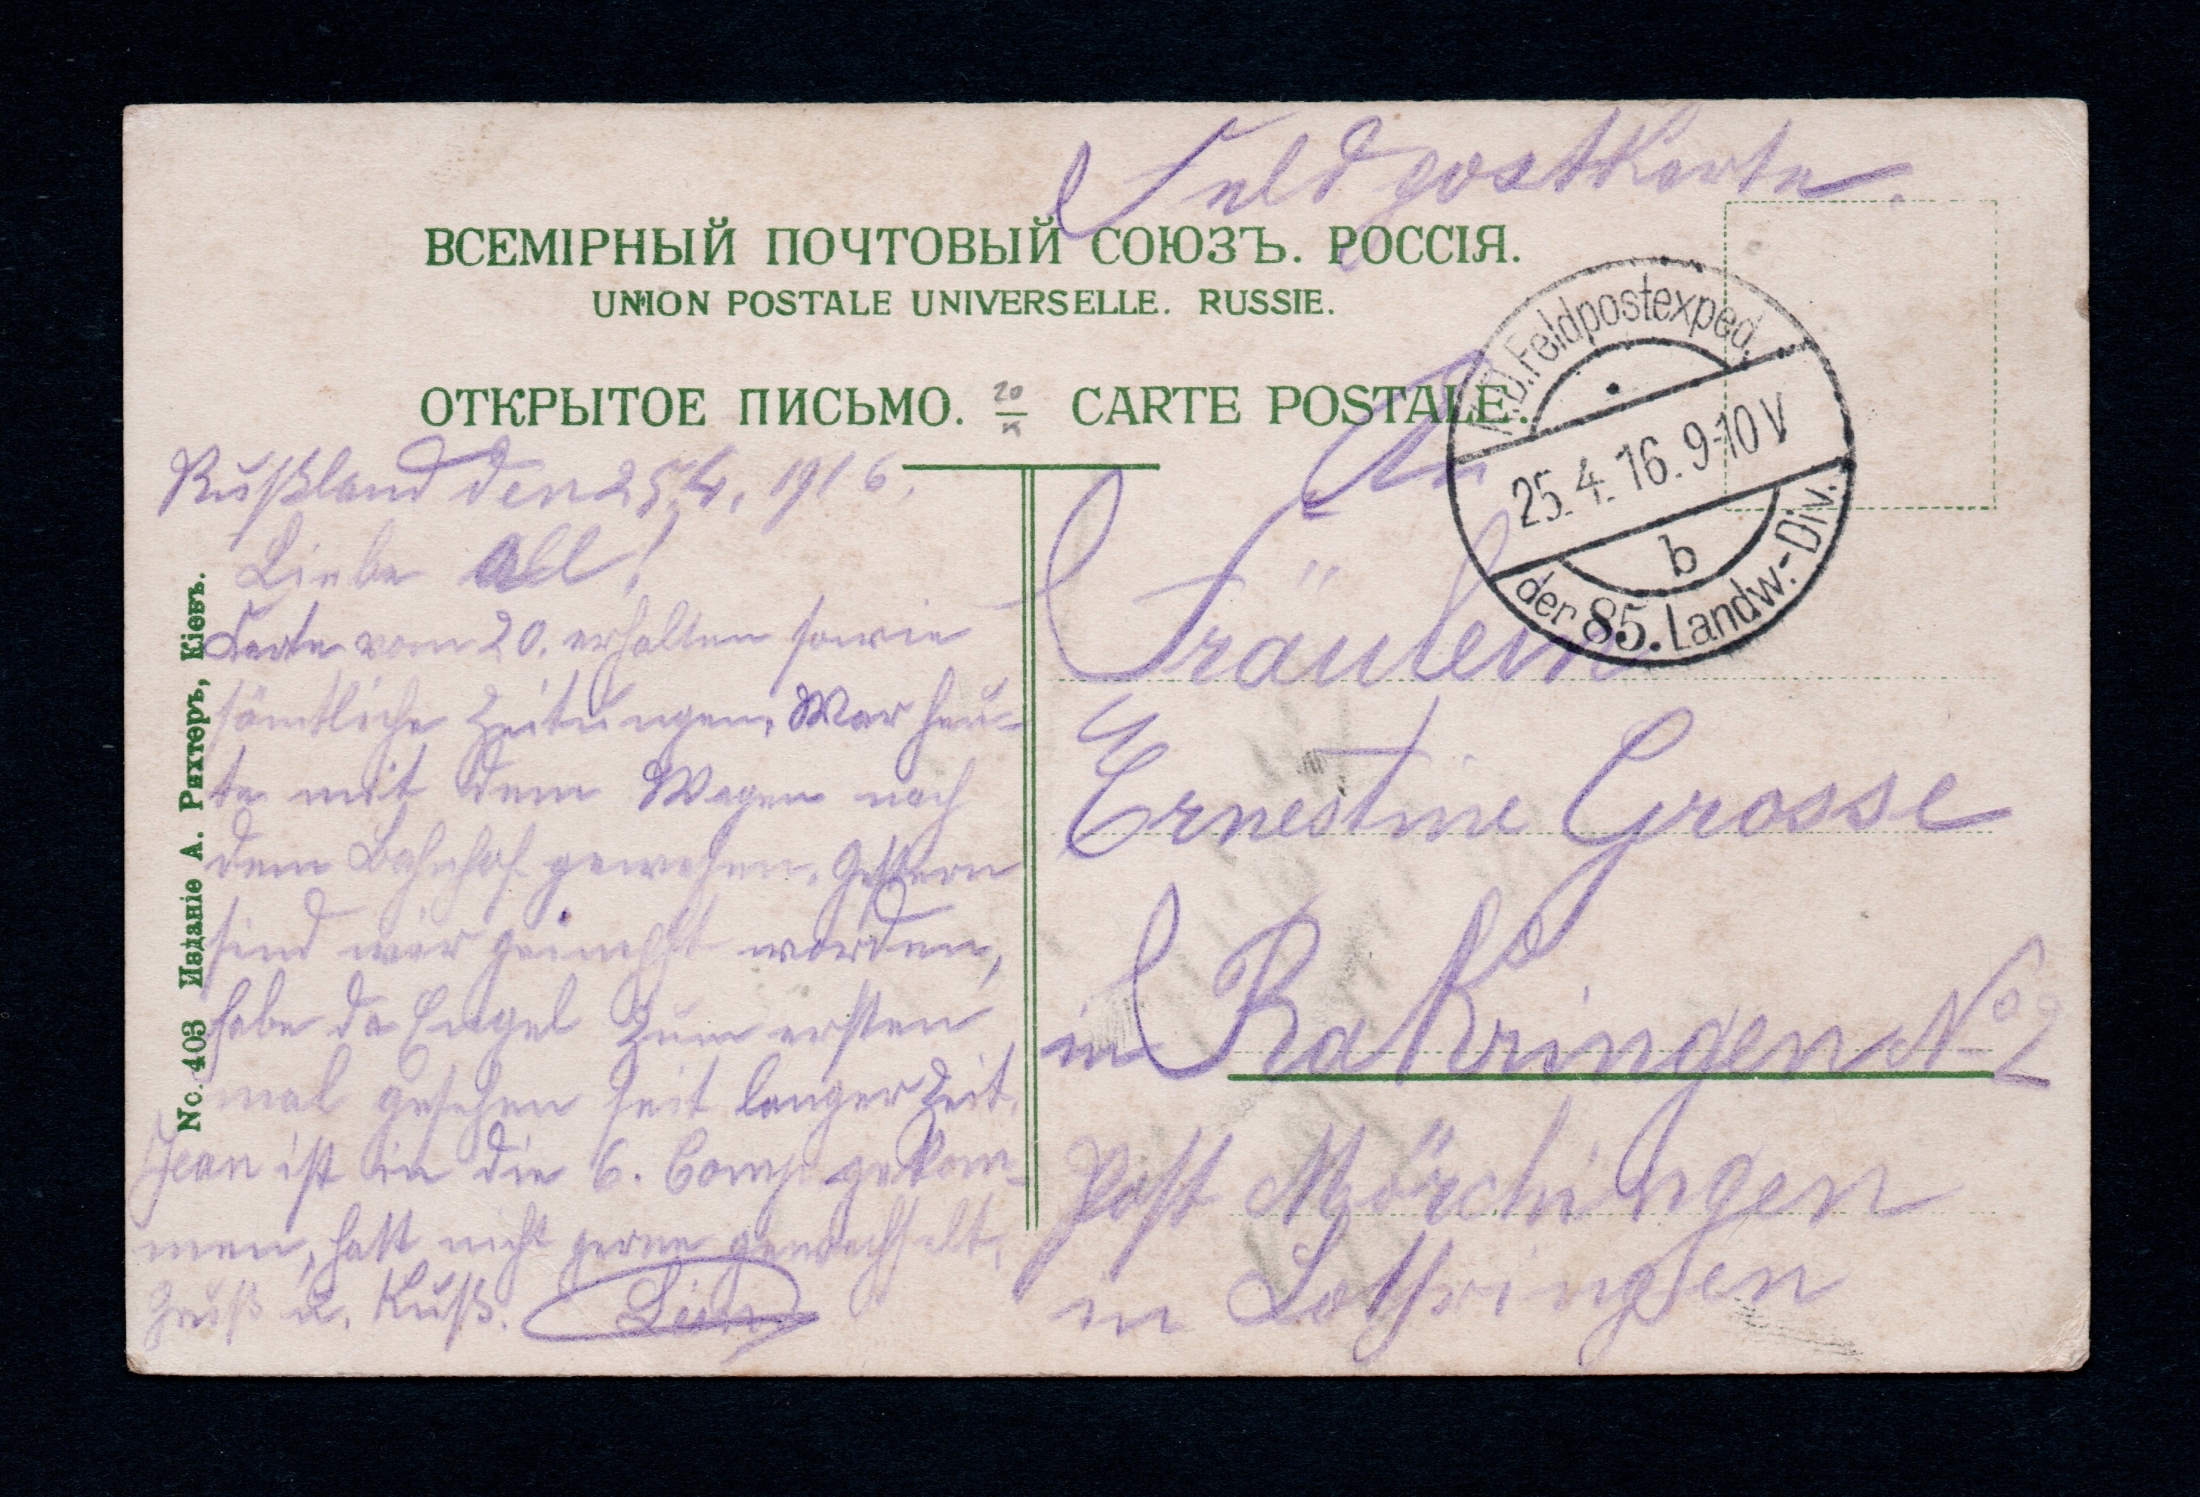 Feldpostkarte.
ВСЕМІРНЫЙ ПОЧТОВЫЙ СОЮЗЪ. РОССІЯ.
UNION POSTALE UNIVERSELLE. RUSSIE.
ОТКРЫТОЕ ПИСЬМО. CARTE POSTALE.
K.D. Feldpostexped.
25.4.16.9-10V
b
der 85. Landw.-Div.
Rußland den 25.4.1916.
Liebe all!
Karte vom 20. erhalten sowie
sämtliche Zeitungen. War heu-
te mit dem Wagen nach
dem Bahnhof gewesen. Gestern
sind wir geimpft worden,
habe da Engel zum ersten
mal gesehen seit langer Zeit.
Jean ist in die 6. Comp. gekom-
men, hatt nicht gerne gewechselt.
Gruß u. Kuß.
An
Fräulein
Ernestine Grosse
in Rakringen No 2
Post Mörchingen
in Lothringen
No. 403 Изданіе А. Рихтеръ, Кіевъ.